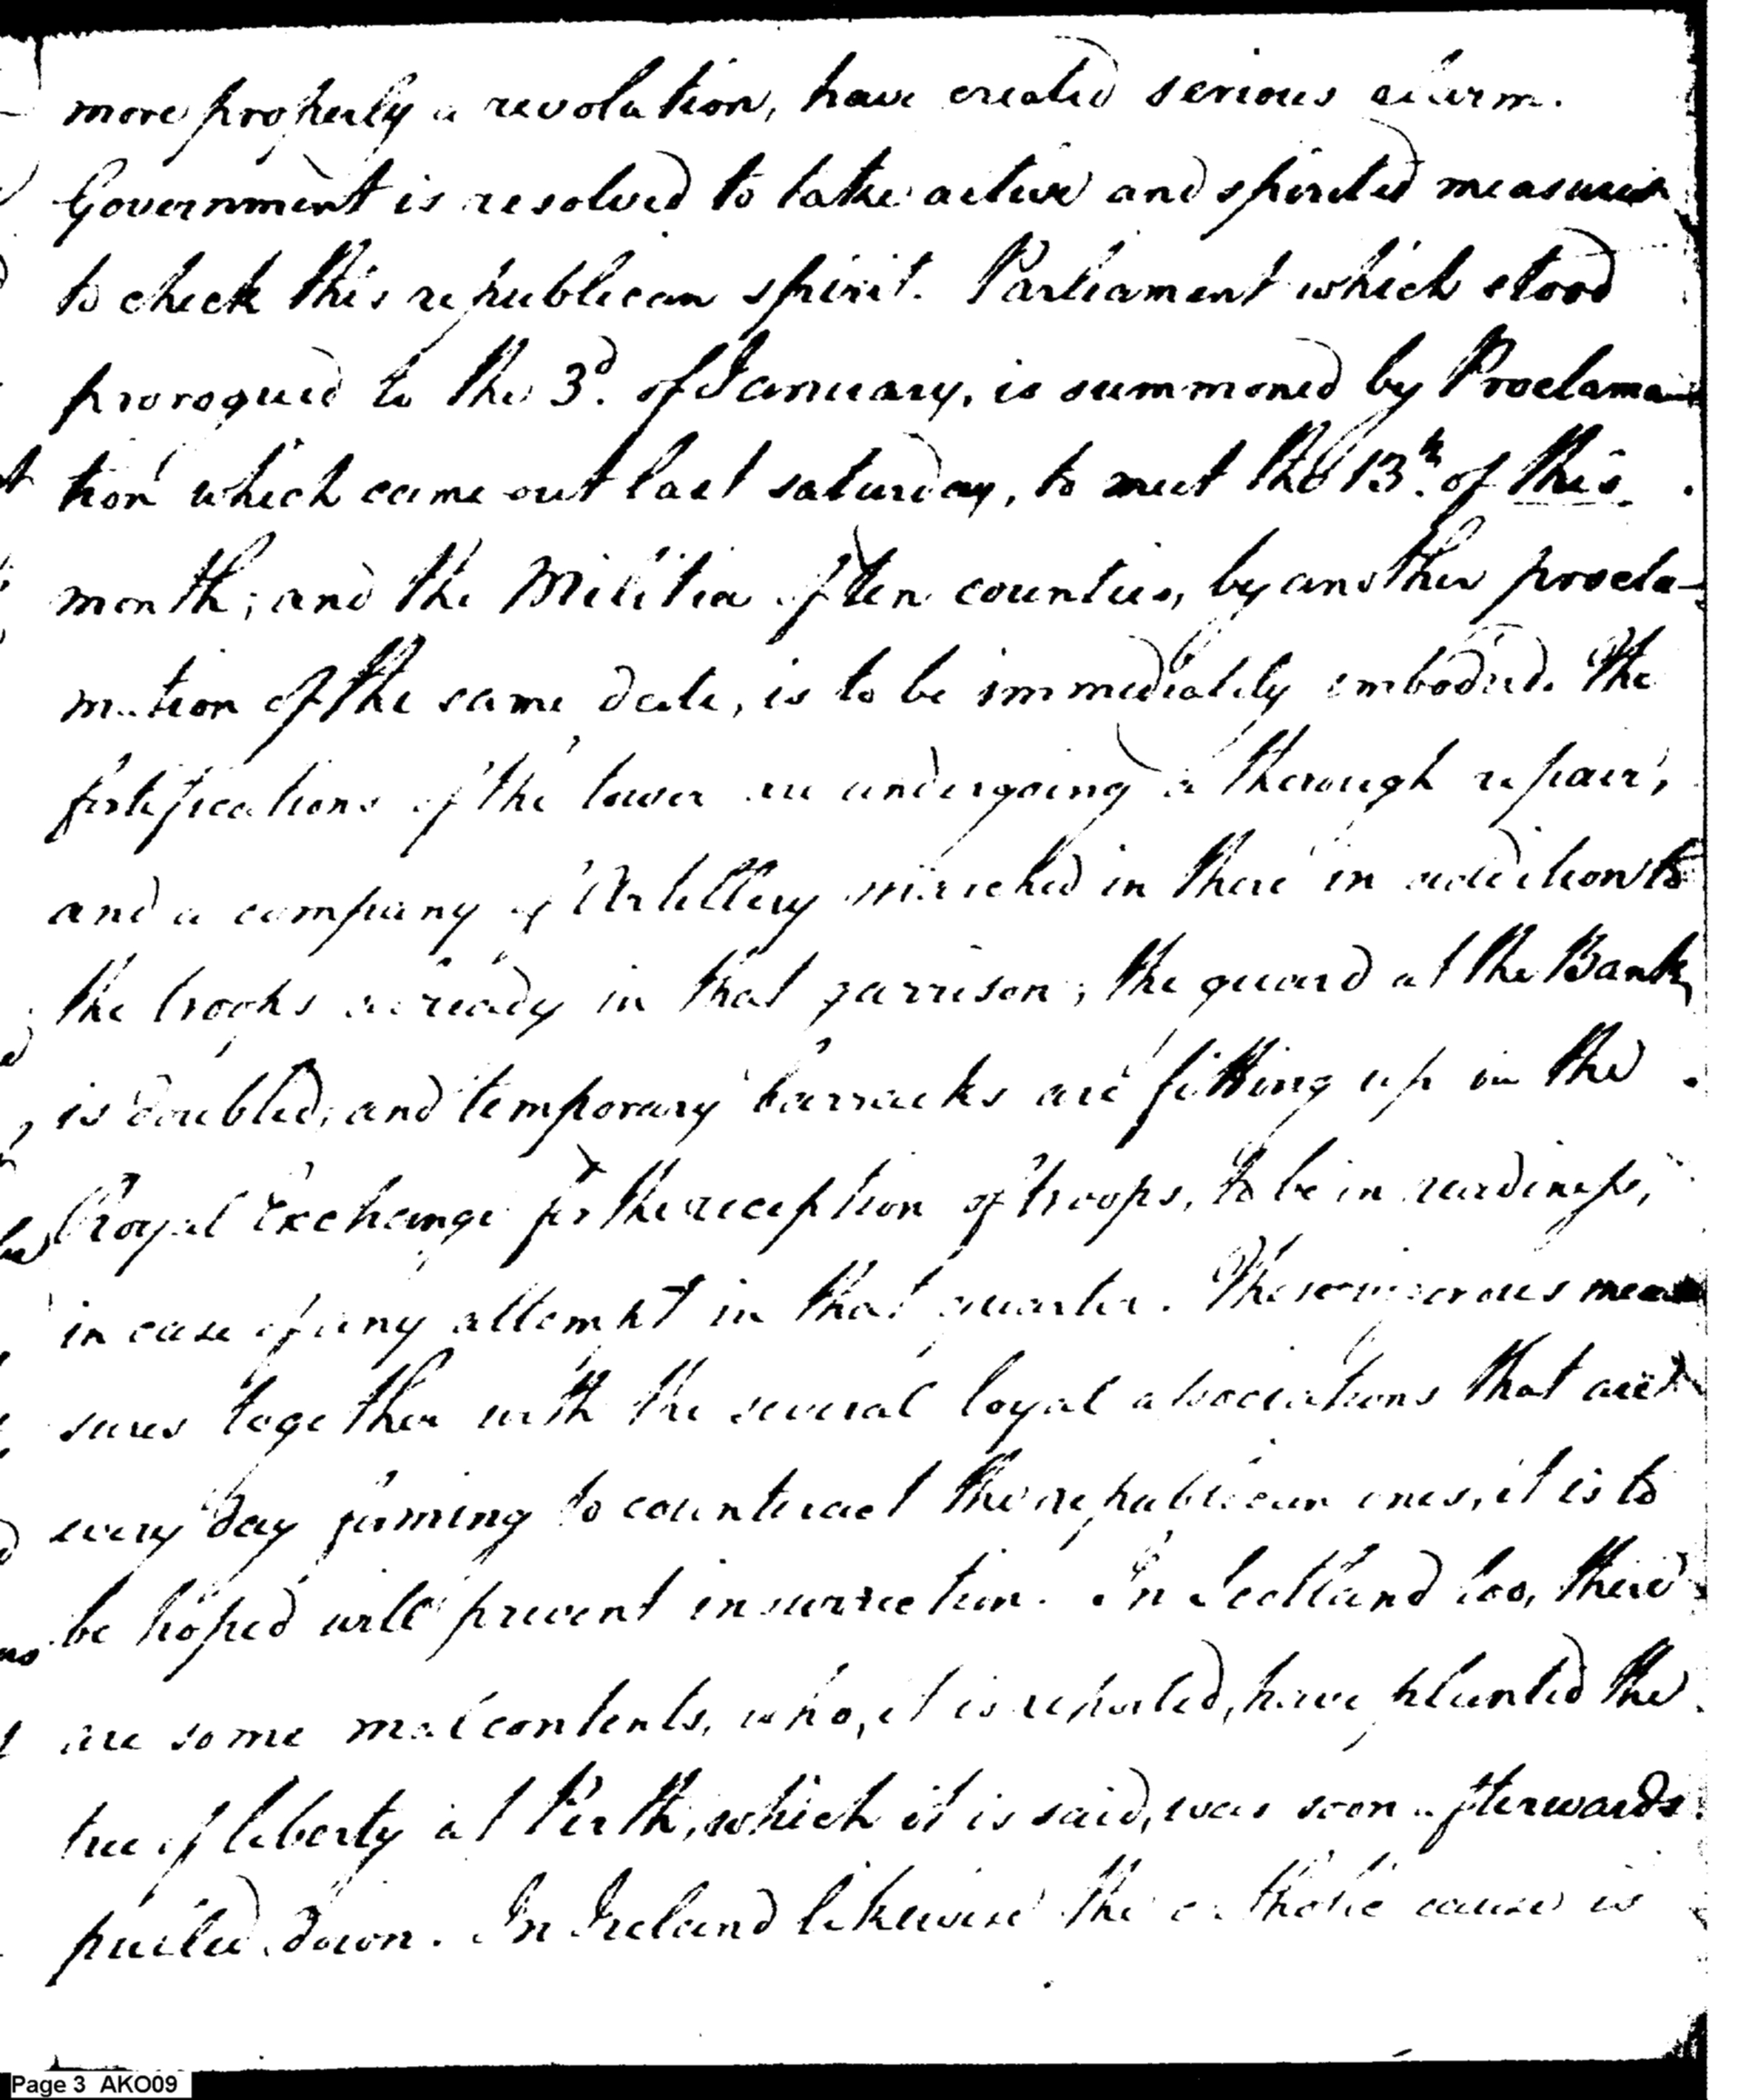 more properly a revolution, have created serious alarm.
Government is resolved to take active and spirited measures
to check this republican spirit. Parliament which stood
prorogued to the 3d. of January, is summoned by Proclama-
tion which came out last saturday, to meet the 13th. of this
month; and the Militia of ten counties, by another procla-
mation of the same date, is to be immediately embodied. The
fortifications of the tower are undergoing a thorough repair,
and a company of Artillery marched in there in addition to
the troops already in that garrison; the guard at the Bank
is doubled; and temporary barracks are fitting up in the
Royal Exchange for the reception of troops, to be in readiness,
in case of any attempt in that quarter. These vigorous mea-
sures together with the several loyal associations that are
every day forming to counteract the republican ones, it is to
be hoped will prevent insurrection. In Scotland too, there
are some malcontents, who, it is reported, have planted the
tree of liberty at Perth, which it is said, was soon afterwards
pulled down. In Ireland likewise the catholic cause is
Page 3 AKO09